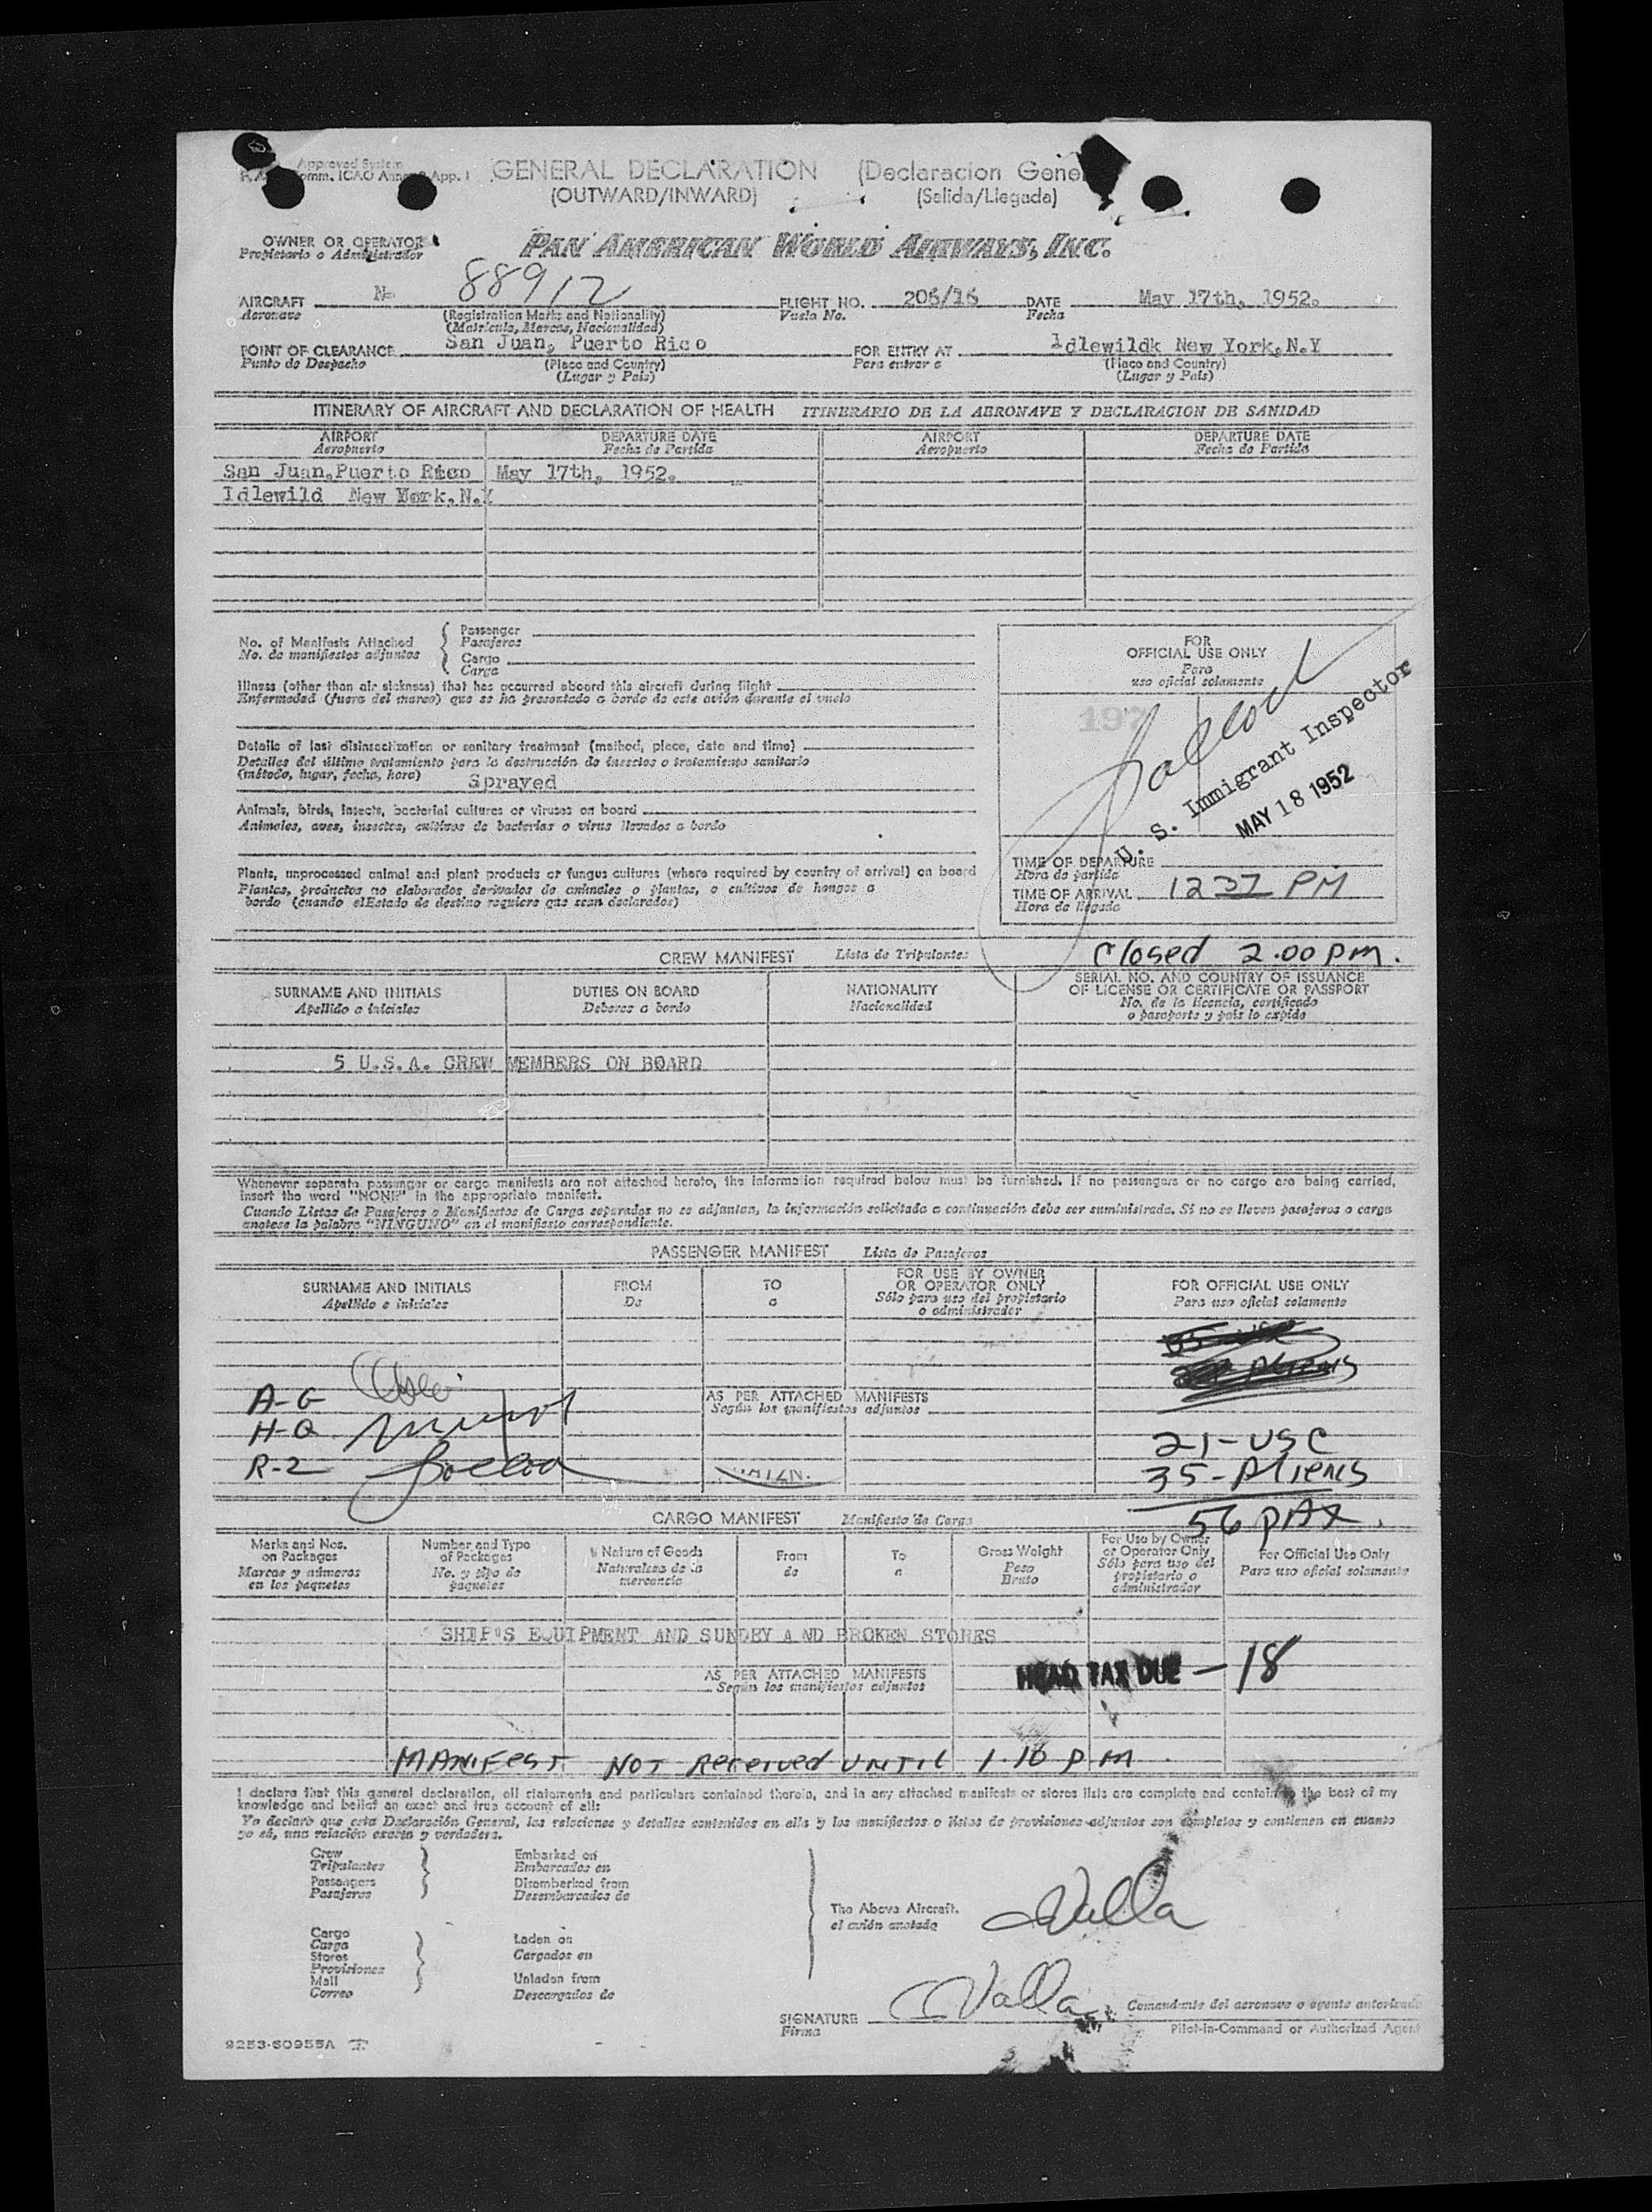 Approved System
omm. ICAO Annex 9 App. I
GENERAL DECLARATION (Declaracion Gene
(OUTWARD/INWARD) (Salida/Llegada)
OWNER OR OPERATOR
Propietario o Administrador
PAN AMERICAN WORLD AIRWAYS, INC.
AIRCRAFT N- 88912 FLIGHT NO. 206/16 DATE May 17th, 1952.
Aeronave (Registration Marks and Nationality) Vuelo No. Fecha
(Matricula, Marcas, Nacionalidad)
POINT OF CLEARANCE San Juan, Puerto Rico FOR ENTRY AT Idlewildk New York,N.Y
Punto de Despacho (Place and Country) Para entrar a (Place and Country)
(Lugar y Pais) (Lugar y Pais)
ITINERARY OF AIRCRAFT AND DECLARATION OF HEALTH ITINERARIO DE LA AERONAVE Y DECLARACION DE SANIDAD
AIRPORT DEPARTURE DATE AIRPORT DEPARTURE DATE
Aeropuerto Fecha de Partida Aeropuerto Fecha de Partida
San Juan,Puerto Rico May 17th, 1952.
Idlewild New York,N.Y
No. of Manifests Attached
No. de manifiestos adjuntos
Passenger
Pasajeros
Cargo
Carga
Illness (other than air sickness) that has occurred aboard this aircraft during flight
Enfermedad (fuera del mareo) que se ha presentado a bordo de este avión durante el vuelo
Details of last disinsectization or sanitary treatment (method, place, date and time)
Detalles del último tratamiento para la destrucción de insectos o tratamiento sanitario
(método, lugar, fecha, hora) Sprayed
Animals, birds, insects, bacterial cultures or viruses on board
Animales, aves, insectos, cultivos de bacterias o virus llevados a bordo
Plants, unprocessed animal and plant products or fungus cultures (where required by country of arrival) on board
Plantas, productos no elaborados derivados de animales o plantas, o cultivos de hongos a
bordo (cuando elEstado de destino requiere que sean declarados)
FOR
OFFICIAL USE ONLY
Para
uso oficial solamente
197
U. S. Immigrant Inspector
MAY 18 1952
TIME OF DEPARTURE
Hora de partida
TIME OF ARRIVAL 1237 PM
Hora de llegada
Closed 2.00 pm.
CREW MANIFEST Lista de Tripulantes
SURNAME AND INITIALS DUTIES ON BOARD NATIONALITY SERIAL NO. AND COUNTRY OF ISSUANCE
OF LICENSE OR CERTIFICATE OR PASSPORT
Apellido e iniciales Deberes a bordo Nacionalidad No. de la licencia, certificado
o pasaporte y pais lo expide
5 U.S.A. CREW MEMBERS ON BOARD
Whenever separate passenger or cargo manifests are not attached hereto, the information required below must be furnished. If no passengers or no cargo are being carried,
insert the word "NONE" in the appropriate manifest.
Cuando Listas de Pasajeros o Manifiestos de Carga separados no se adjuntan, la información solicitada a continuación debe ser suministrada. Si no se lleven pasajeros o carga
anotese la palabra "NINGUNO" en el manifiesto correspondiente.
PASSENGER MANIFEST Lista de Pasajeros
SURNAME AND INITIALS FROM TO FOR USE BY OWNER
OR OPERATOR ONLY FOR OFFICIAL USE ONLY
Apellido e iniciales De a Sólo para uso del propietario
o administrador Para uso oficial solamente
A-G
AS PER ATTACHED MANIFESTS
Según los manifiestos adjuntos
H-Q
R-Z
21-USC
35-Aliens
56 pAX.
CARGO MANIFEST Manifiesto de Carga
Marks and Nos.
on Packages
Marcas y números
en los paquetes
Number and Type
of Packages
No. y tipo de
paquetes
Nature of Goods
Naturaleza de la
mercancia
From
de
To
a
Gross Weight
Peso
Bruto
For Use by Owner
or Operator Only
Sólo para uso del
propietario o
administrador
For Official Use Only
Para uso oficial solamente
SHIP'S EQUIPMENT AND SUNDRY AND BROKEN STORES
AS PER ATTACHED MANIFESTS
Según los manifiestos adjuntos
HEAD TAX DUE - 18
MANIFEST NOT Received UNTIL 1.10 P.M.
I declare that this general declaration, all statements and particulars contained therein, and in any attached manifests or stores lists are complete and contain to the best of my
knowledge and belief an exact and true account of all:
Yo declaro que esta Declaración General, las relaciones y detalles contenidos en ella y los manifiestos o listas de provisiones adjuntos son completos y contienen en cuanto
yo sé, una relación exacta y verdadera.
Crew
Tripulantes
Passengers
Pasajeros
Embarked on
Embarcados en
Disembarked from
Desembarcados de
Cargo
Carga
Stores
Provisiones
Mail
Correo
Laden on
Cargados en
Unladen from
Descargados de
The Above Aircraft.
el avión anotado
Valla
SIGNATURE Valla
Firma
Comandante del aeronave o agente autorizado
Pilot-in-Command or Authorized Agent
9253-60955A